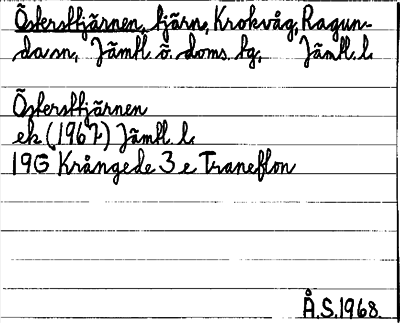 Österstjärnen, tjärn, Krokvåg, Ragun-
da sn, Jämtl. ö. doms. tg, Jämtl. l.
Österstjärnen
ek (1967) Jämtl. l.
19G Krångede 3 e Traneflon
Å.S. 1968.